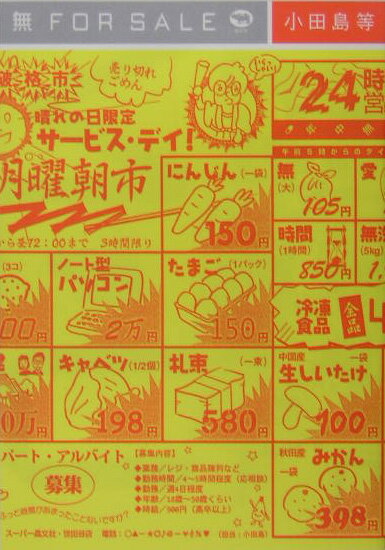 無 FOR SALE
小田島等
破格市
売り切れ
ごめん
晴れの日限定
サービス・デイ!
月曜朝市
から昼12:00まで 3時間限り
24時
にんじん(一袋)
150円
無(大)
105円
愛
時間(1時間)
850円
(3コ)
00円
ノート型
パソコン
2万円
たまご(1パック)
150円
冷凍
食品
全品
4
0万円
キャベツ(1/2個)
198円
札束(一束)
580円
中国産 一袋
生しいたけ
100円
パート・アルバイト
募集
【募集内容】
◆業務/レジ・商品陳列など
◆勤務時間/4~5時間程度(応相談)
◆勤務/週4日程度
◆年齢/18歳~50歳くらい
◆時給/900円(高卒以上)
スーパー晶文社・世田谷店
(担当:小田島)
秋田産
一袋
みかん
398円